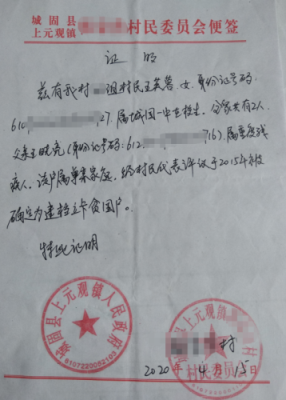 城固县
上元观镇 村民委员会便签
证 明
兹有我村 组村民王 鲁,女,身份证号码:
610 27.属城固一中在校生,全家共有2人,
父亲王 亮(身份证号码:612 716).属重度残
病人,该户属单亲家庭,经村民代表评议于2015年被
确定为建档立卡贫困户。
特此证明
城固县上元观镇人民政府
6107220002103
村
村民委员会
2020年4月15日